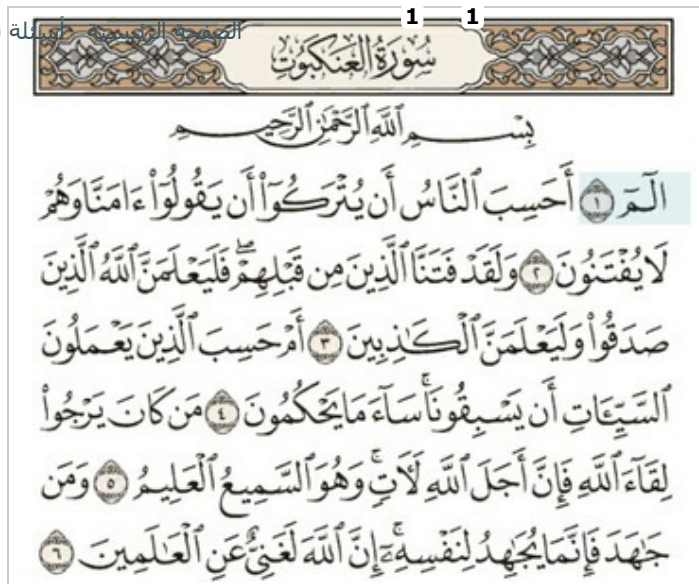 1 1
الصفحة الرئيسية أسئلة
سُورَةُ الْعَنكَبُوتِ
بِسْمِ ٱللَّهِ ٱلرَّحْمَٰنِ ٱلرَّحِيمِ
الٓمٓ ١ أَحَسِبَ ٱلنَّاسُ أَن يُتْرَكُوٓا۟ أَن يَقُولُوٓا۟ ءَامَنَّا وَهُمْ
لَا يُفْتَنُونَ ٢ وَلَقَدْ فَتَنَّا ٱلَّذِينَ مِن قَبْلِهِمْ ۖ فَلَيَعْلَمَنَّ ٱللَّهُ ٱلَّذِينَ
صَدَقُوا۟ وَلَيَعْلَمَنَّ ٱلْكَٰذِبِينَ ٣ أَمْ حَسِبَ ٱلَّذِينَ يَعْمَلُونَ
ٱلسَّيِّـَٔاتِ أَن يَسْبِقُونَا ۚ سَآءَ مَا يَحْكُمُونَ ٤ مَن كَانَ يَرْجُوا۟
لِقَآءَ ٱللَّهِ فَإِنَّ أَجَلَ ٱللَّهِ لَءَاتٍ ۚ وَهُوَ ٱلسَّمِيعُ ٱلْعَلِيمُ ٥ وَمَن
جَٰهَدَ فَإِنَّمَا يُجَٰهِدُ لِنَفْسِهِۦٓ ۚ إِنَّ ٱللَّهَ لَغَنِىٌّ عَنِ ٱلْعَٰلَمِينَ ٦